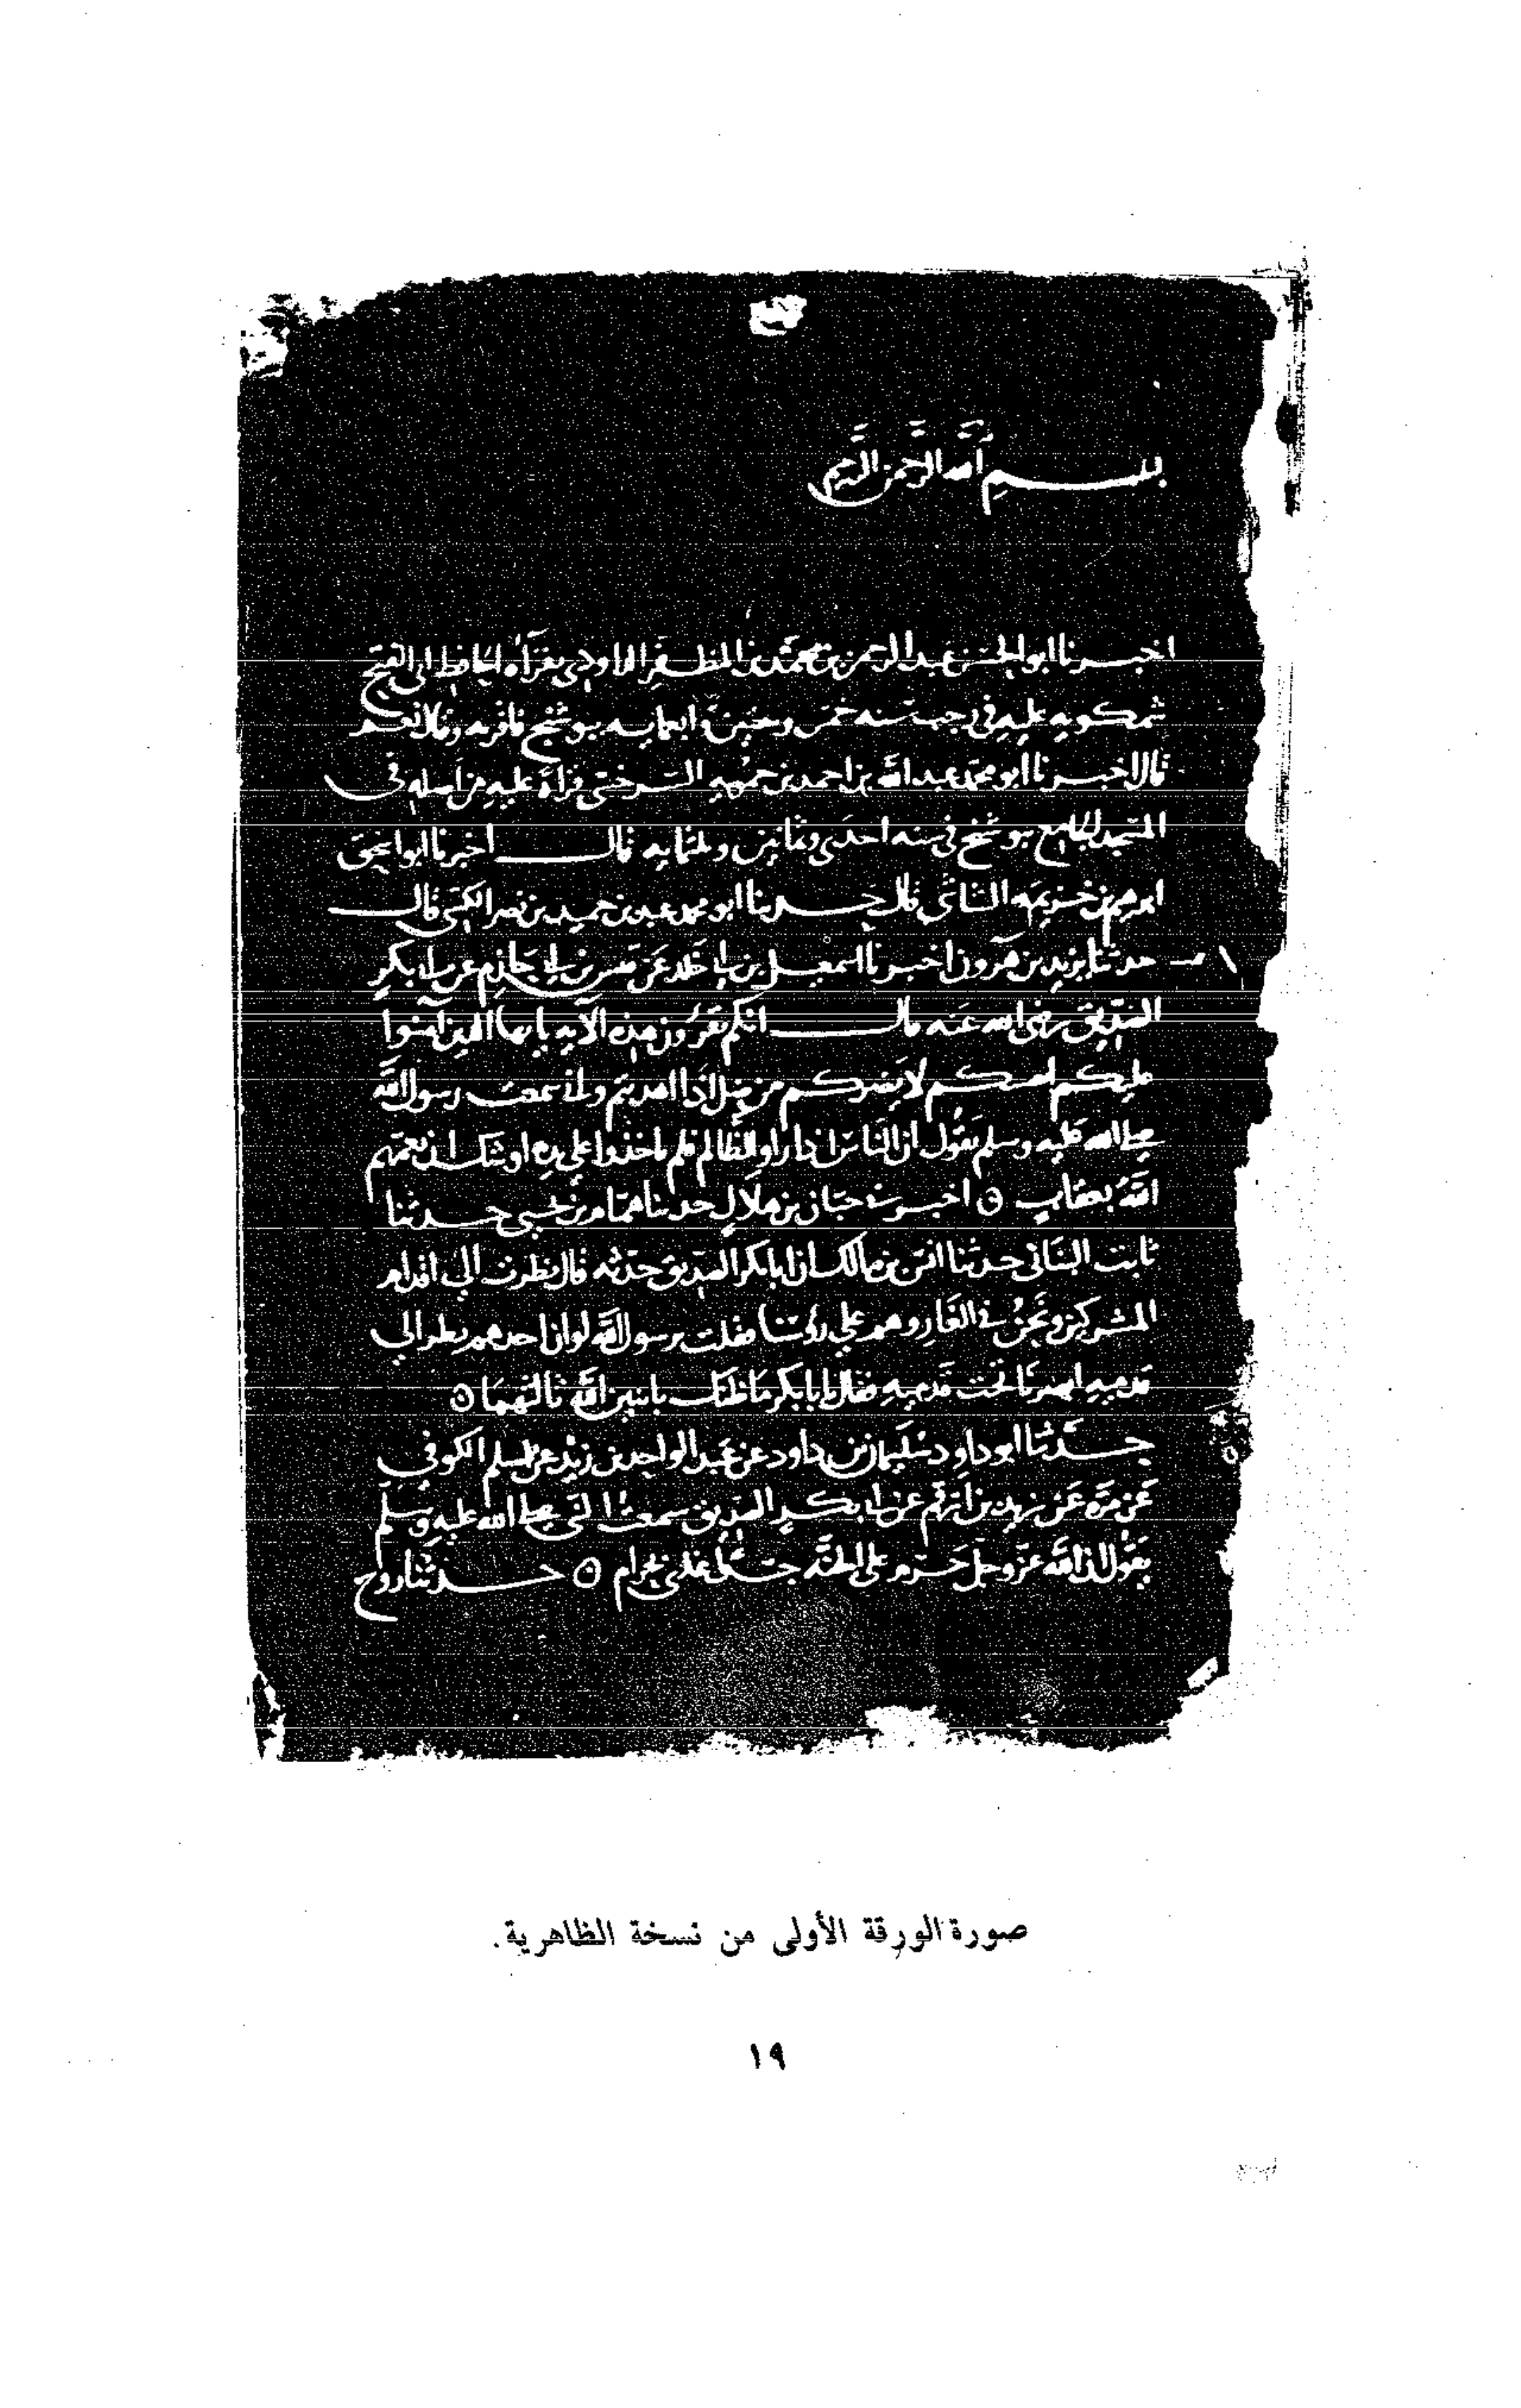 بسم الله الرحمن الرحيم
اخبرنا ابو الحسن عبد الرحمن بن محمد بن المظفر الداودي بقراه الحافظ ابي الفتح
عليه في رجب سنه خمس وستين واربعمايه ببوشنج فاقر به وقال نعم
قال اخبرنا ابو محمد عبد الله بن احمد بن حمويه السرخسي قراءة عليه من اصله في
المسجد الجامع ببوشنج في سنه احدى وثمانين وثلثمايه قال اخبرنا ابو اسحق
ابرهيم بن خزيمه الشاشي قال حدثنا ابو محمد عبد بن حميد بن نصر الكشي قال
١ - حدثنا يزيد بن هرون اخبرنا اسمعيل بن ابي خلد عن قيس بن ابي حازم عن ابي بكر
الصديق رضي الله عنه قال انكم تقرؤن هذه الآيه يا يها الذين آمنوا
عليكم انفسكم لا يضركم من ضل اذا اهديتم واني سمعت رسول الله
صلى الله عليه وسلم يقول ان الناس اذا راوا الظالم فلم ياخذوا على يده اوشك ان يعمهم
الله بعقاب ٥ اخبرني حبان بن هلال حدثنا همام بن يحيى حدثنا
ثابت البناني حدثنا انس بن مالك ان ابا بكر الصديق حدثه قال نظرت الى اقدام
المشركين ونحن في الغار وهم على رؤسنا فقلت يرسول الله لو ان احدهم نظر الى
قدميه ابصرنا تحت قدميه فقال يا با بكر ما ظنك باثنين الله ثالثهما ٥
حدثنا ابو داود سليمان بن داود عن عبد الواحد بن زيد عن اسلم الكوفي
عن مره عن زيد بن ارقم عن ابي بكر الصديق سمعت النبي صلى الله عليه وسلم
يقول ان الله عز وجل حرم على الجنه جسدا غذي بحرام ٥ حدثنا روح
صورة الورقة الأولى من نسخة الظاهرية.
١٩